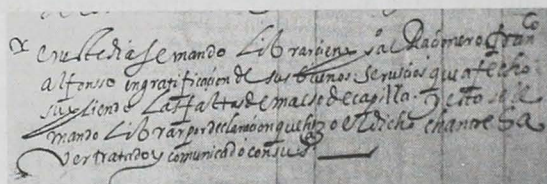 en este dia se mando librar cien ps al Racionero fran^co
alfonso en gratificacion de sus buenos servicios que a fecho
supliendo las faltas de maese de capilla. y esto se le
mando librar por declaracion que hizo el dicho chantre
ver tratado y comunicado con su s^a